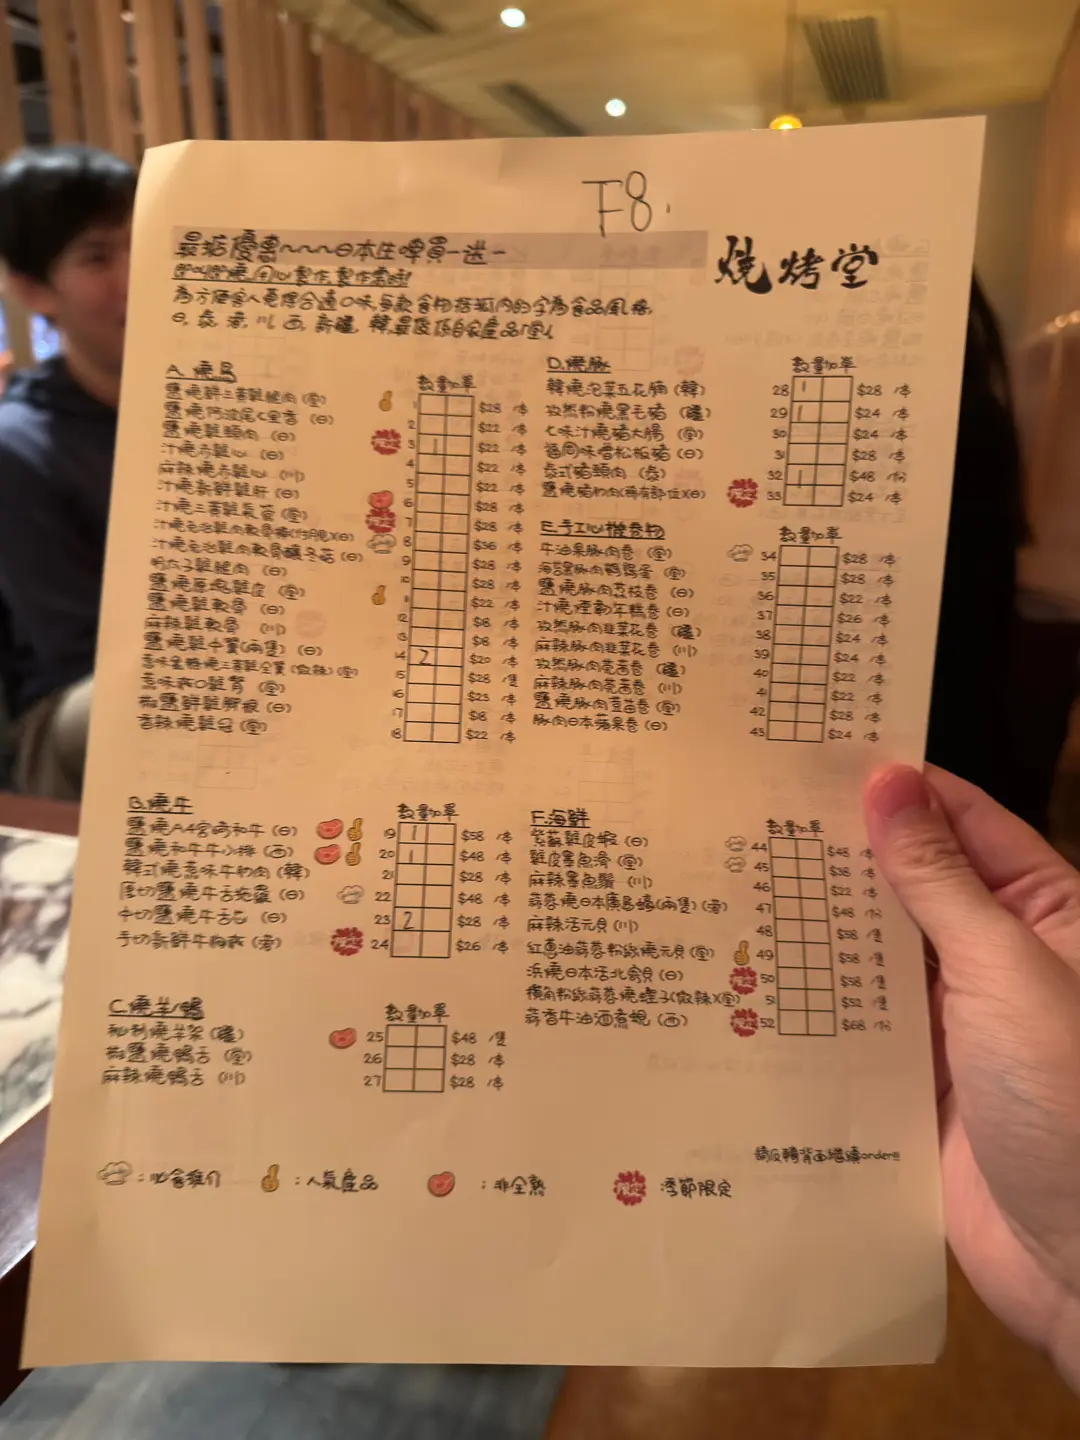 F8.
最新優惠~~~日本生啤買一送一
燒烤堂
即叫即燒,用心製作,製作需時!
為方便客人選擇合適口味,每款食物括弧內的字為食品風格,
日, 泰, 港, 川, 西, 新疆, 韓,最後係自家產品「堂」
A. 燒鳥
數量加單
鹽燒鮮三黃雞腿肉(堂) 1 $28 /本
鹽燒阿波尾七里香 (日) 2 $22 /本
鹽燒雞頸肉 (日) 限定 3 1 $22 /本
汁燒赤雞心 (日) 4 $22 /本
麻辣燒赤雞心 (川) 5 $22 /本
汁燒新鮮雞肝 (日) 6 $28 /本
汁燒三黃雞氣管 (堂) 限定 7 $28 /本
汁燒免治雞肉軟骨棒(月見)(日) 8 $36 /本
汁燒免治雞肉軟骨釀冬菇 (日) 9 $28 /本
明太子雞腿肉 (日) 10 $28 /本
鹽燒原塊雞皮 (堂) 11 $22 /本
鹽燒雞軟骨 (日) 12 $8 /本
麻辣雞軟骨 (川) 13 $8 /本
鹽燒雞中翼(兩隻) (日) 14 2 $20 /本
蜜糖燒三黃雞全翼 (微辣) (堂) 15 $28 /隻
雞腎 (堂) 16 $23 /本
椒鹽鮮雞腳根 (日) 17 $8 /本
香辣燒雞冠 (堂) 18 $22 /本
B. 燒牛
數量加單
鹽燒A4宮崎和牛 (日) 19 1 $58 /本
鹽燒和牛牛小排 (西) 20 1 $48 /本
韓式燒蔥味牛肋肉 (韓) 21 $28 /本
厚切鹽燒牛舌 (日) 22 $48 /本
中切鹽燒牛舌芯 (日) 23 2 $28 /本
手切新鮮牛 (港) 限定 24 $26 /本
C. 燒羊/鴨
數量加單
秘制燒羊架 (疆) 25 $48 /隻
椒鹽燒鴨舌 (堂) 26 $28 /本
麻辣燒鴨舌 (川) 27 $28 /本
D. 燒豚
數量加單
韓燒泡菜五花腩 (韓) 28 1 $28 /本
孜然粉燒黑毛豬 (疆) 29 1 $24 /本
七味汁燒豬大腸 (堂) 30 $24 /本
福岡味噌松板豬 (日) 31 $28 /本
泰式豬頸肉 (泰) 32 1 $48 /份
鹽燒豬肋肉(稀有部位)(日) 限定 33 $24 /本
E. 手工心機卷物
數量加單
牛油果豚肉卷 (堂) 34 $28 /本
海苔黑豚肉鵪鶉蛋 (堂) 35 $28 /本
鹽燒豚肉荔枝卷 (日) 36 $22 /本
汁燒煙韌年糕卷 (日) 37 $26 /本
孜然豚肉韭菜花卷 (疆) 38 $24 /本
麻辣豚肉韭菜花卷 (川) 39 $24 /本
孜然豚肉莞茜卷 (疆) 40 $22 /本
麻辣豚肉莞茜卷 (川) 41 $22 /本
鹽燒豚肉豆苗卷 (堂) 42 $28 /本
豚肉日本蘋果卷 (日) 43 $24 /本
F. 海鮮
數量加單
紫蘇雞皮蝦 (日) 44 $48 /本
雞皮墨魚滑 (堂) 45 $38 /本
麻辣墨魚鬚 (川) 46 $22 /本
蒜蓉燒日本廣島蠔(兩隻) (港) 47 $48 /份
麻辣活元貝 (川) 48 $58 /隻
紅蔥油蒜蓉粉絲燒元貝 (堂) 49 $58 /隻
浜燒日本活北寄貝 (日) 限定 50 $58 /隻
粉絲蒜蓉燒蟶子(微辣)(堂) 51 $52 /隻
蒜香牛油酒煮蜆 (西) 限定 52 $68 /份
請反轉背面繼續order!!!
:必食推介
:人氣產品
:非全熟
限定 季節限定